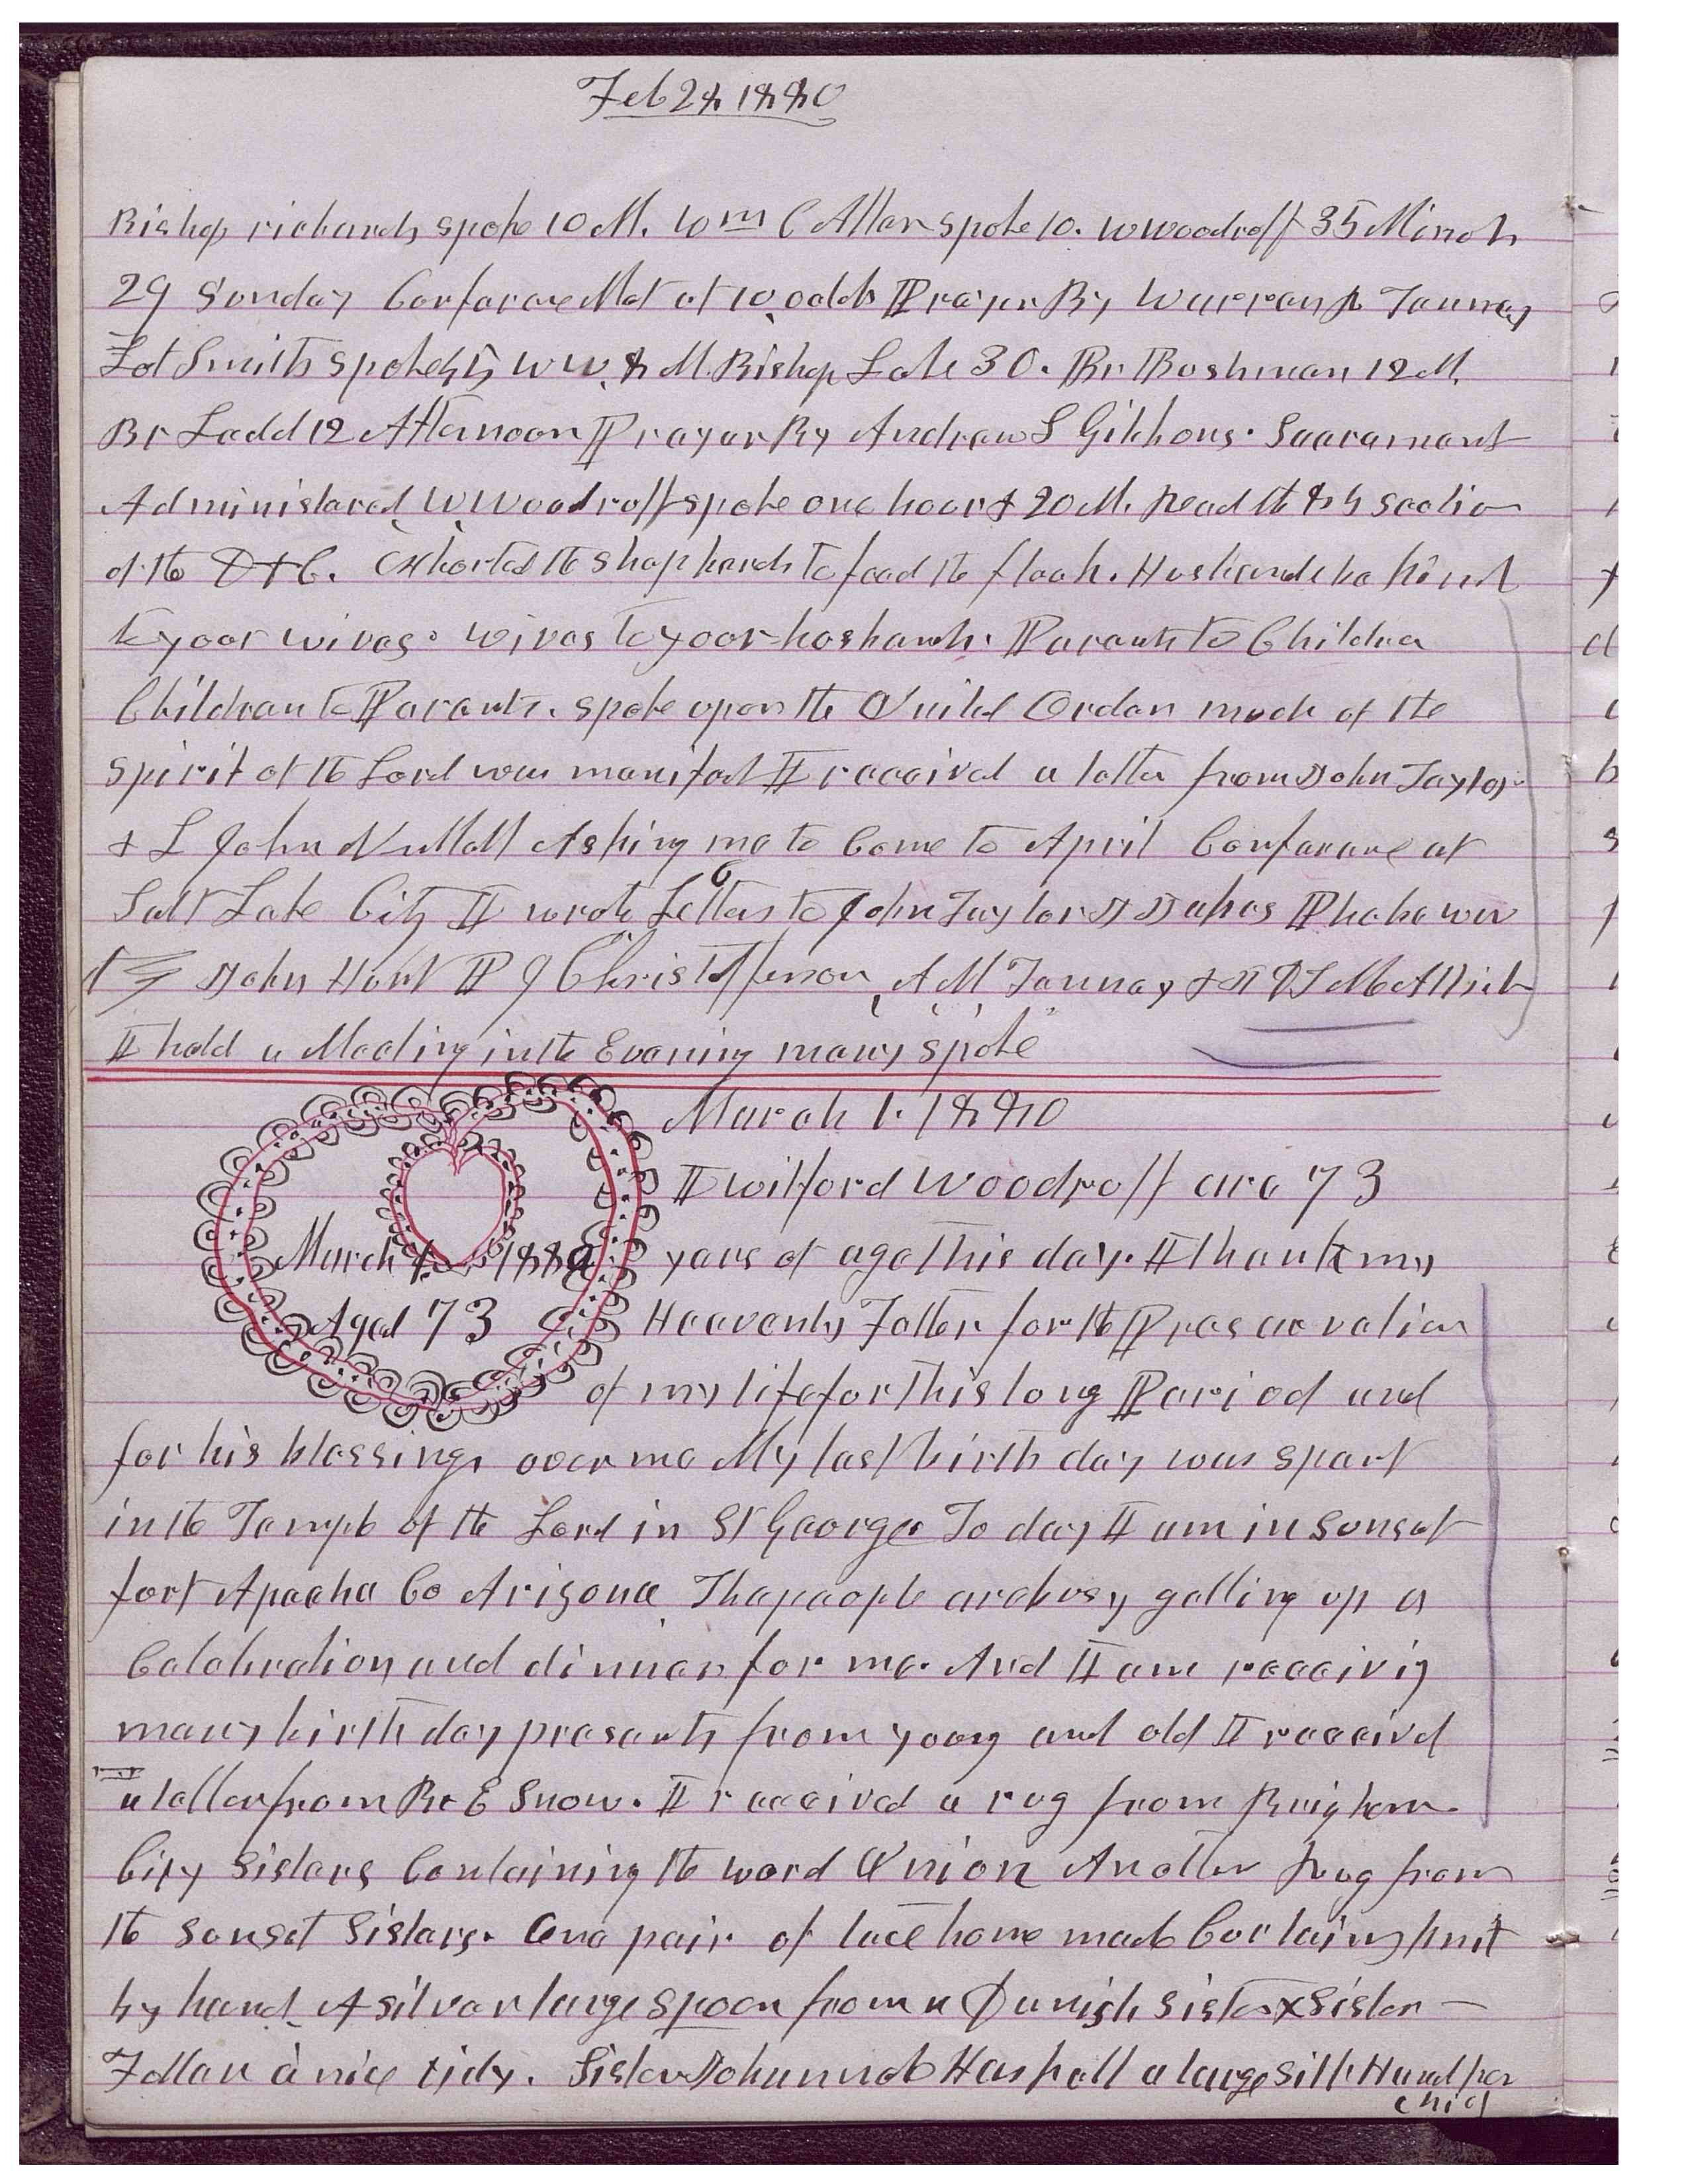 Feb 28, 1880
Bishop richards spoke 10 M. Wm C Allen spoke 10. W Woodruff 35 Minuts
29 Sunday Conferance Met at 10, oclok Prayer By Warren R Tenney
Lot Smith spoke 45 W W. 8 M. Bishop Lake 30. Br Bushman 12 M.
Br Ladd 12 Afternoon Prayer By Andrew S Gibbons. Sacrament
Administered W Woodruff spoke one hour & 20 M. Read the 84 section
of the D & C. Exhorted the shepherds to feed the flock. Husbands be kind
to your wives. wives to your husbands. Parents to Children
Children to Parents. spoke upon the United Order much of the
spirit of the Lord was manifest I received a letter from John Taylor
& L John Nuttall Asking me to Come to April Conferance at
Salt Lake City I wrote 6 Letters to John Taylor J Jakes Phebe WW
John Hunt P J Christofferson, A M Tenney & J D T McAllister
I held a Meeting in the Evening many spoke
March 1. 1880
I Wilford Woodruff are 73
March 1. 1880 years of age this day. I thank my
Aged 73 Heavenly Father for the Preservation
of my life for this long Period and
for his blessings over me My last birth day was spent
in the Temple of the Lord in St George To day I am in Sunset
fort Apache Co Arizona The people are busy getting up a
Celebration and dinner for me. And I am receivig
many birth day presents from young and old I receivd
a letter from Br E Snow. I received a rug from Brigham
City Sisters Containing the word Union Another Rug from
the Sunset Sisters. One pair of lace home made Curtains knit
by hand. A silver large spoon from a Danish sister & Sister
a nice tidy. Sister Haskell a large silk Handker
chif